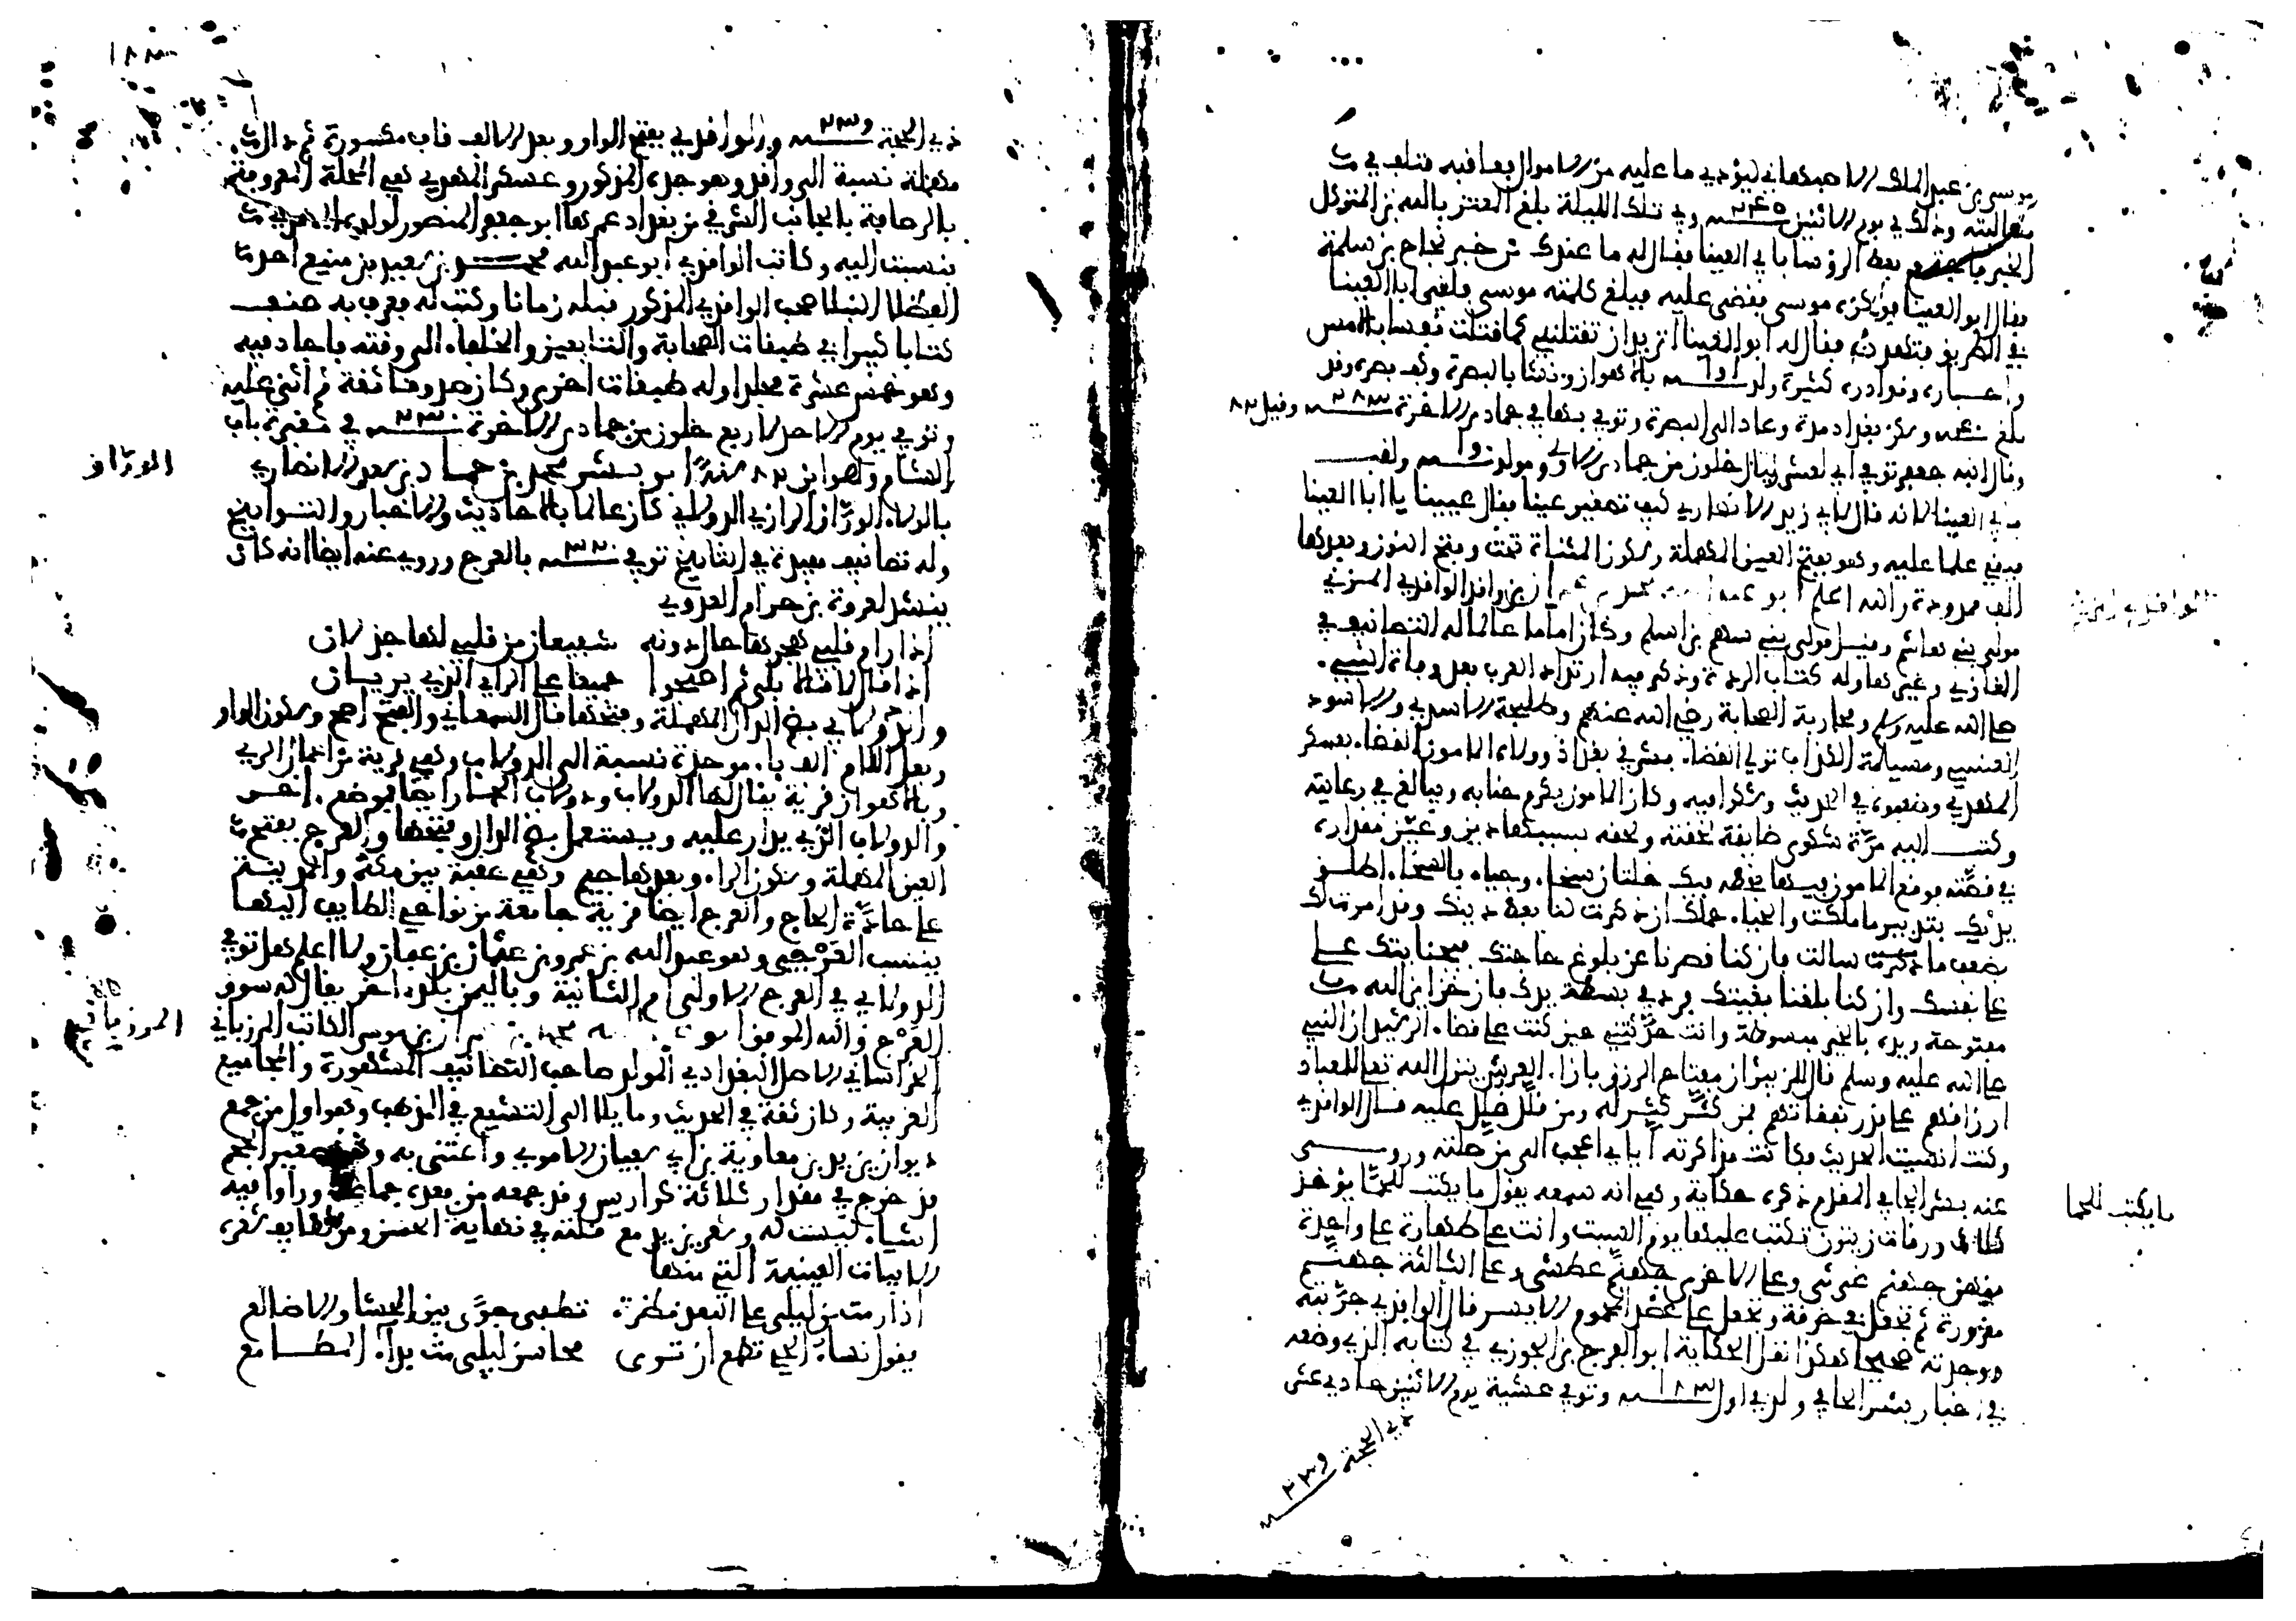 موسى بن عبد الملك الاصبهاني ليؤدي ما عليه من الاموال فعاقبه فتلف في
مطالبته وذلك في يوم الاثنين ٢٤٥ وفي تلك الليلة بلغ المعتز بالله بن المتوكل
الخبر فاجتمع بعض الرؤسا بابي العينا فقال له ما عندك من خبر نجاح بن سلمة
فقال ابو العينا فوكزه موسى فقضى عليه فبلغ كلمته موسى فلقي ابا العينا
في الطريق فتهدده فقال له ابو العينا اتريد ان تقتلني كما قتلت نفسا بالامس
واخباره ونوادره كثيرة ولد ١٩١ بالاهواز ونشا بالبصرة وكف بصره وقد
بلغ ٤٠ وسكن بغداد مدة وعاد الى البصرة وتوفي بها في جمادى الاخرة ٢٨٣ وقيل ٨٢
وقال ابنه جعفر توفي ابي لعشر ليال خلون من جمادى الاولى ومولده ١٩٠ ولقب
بابي العينا لانه قال لابي زيد الانصاري كيف تصغر عينا فقال عيينا يا ابا العينا
فبقي علما عليه وهو بفتح العين المهملة وسكون المثناة تحت وبفتح النون وبعدها
الف ممدودة والله اعلم ابو عبد الله محمد بن عمر بن واقد الواقدي المدني
الواقدي المدني
مولى بني هاشم وقيل مولى بني سهم بن اسلم وكان اماما عالما له التصانيف في
المغازي وغيرها وله كتاب الردة وذكر فيه ارتداد العرب بعد وفاة النبي
صلى الله عليه وسلم ومحاربة الصحابة رضي الله عنهم وطليحة الاسدي والاسود
العنسي ومسيلمة الكذاب تولى القضاء بشرقي بغداذ وولاه المامون القضاء بعسكر
المهدي وضعفوه في الحديث وتكلموا فيه وكان المامون يكرم جنابه ويبالغ في رعايته
وكتب اليه مرة شكوى ضايقة لحقته ولحقه بسببها دين وعين مقداره
في قصته فوقع المامون فيها بخطه فيك خلتان سخاء وحياء فالسخاء اطلق
يديك بتبذير ما ملكت والحياء حملك ان ذكرت لنا بعض دينك وقد امرت لك
بضعف ما سالت فان كنا قصرنا عن بلوغ حاجتك فبجنايتك على
على نفسك وان كنا بلغنا بغيتك فزد في بسطة يدك فان خزائن الله
مفتوحة ويده بالخير مبسوطة وانت حدثتني حين كنت على قضاء الرشيد ان النبي
صلى الله عليه وسلم قال للزبير ان مفتاح الرزق بازاء العرش ينزل الله تعالى للعباد
ارزاقهم على قدر نفقاتهم فمن كثر كثر له ومن قلل قلل عليه قال الواقدي
وكنت انسيت الحديث فكانت مذاكرته ايايي اعجب الي من صلته وروى
عنه بشر الحافي المقدم ذكره حكاية وهي انه سمعه يقول ما يكتب للحمى يؤخذ
ما يكتب للحما
ثلاث ورقات زيتون تكتب عليها يوم السبت وانت على طهارة على واحدة
منهن جهنم غرثى وعلى الاخرى جهنم عطشى وعلى الثالثة جهنم
مقرورة ثم تجعل في خرقة وتجعل على عضد المحموم الايسر قال الواقدي جربته
فوجدته صحيحا هكذا نقل الحكاية ابو الفرج بن الجوزي في كتابه الذي وضعه
في اخبار بشر الحافي ولد في اول ١٣٠ وتوفي عشية يوم الاثنين حادي عشر
ذي الحجة و٢٣
ذي الحجة و٢٣ والواقدي بفتح الواو وبعد الالف قاف مكسورة ثم دال
مهملة نسبة الى واقد وهو جده المذكور وعسكر المهدي هي المحلة المعروفة
بالرصافة بالجانب الشرقي من بغداد عمرها ابو جعفر المنصور لولده المهدي
فنسبت اليه وكاتب الواقدي ابو عبد الله محمد بن سعيد بن منيع احد
الفضلا النبلا صحب الواقدي المذكور قبله زمانا وكتب له فعرف به صنف
كتابا كبيرا في طبقات الصحابة والتابعين والخلفاء الى وقته فاجاد فيه
وهو خمس عشرة مجلدا وله طبقات اخرى وكان صدوقا ثقة ثم اثني عليه
وتوفي يوم الاحد لاربع خلون من جمادى الاخرة ٢٣٠ في مقبرة باب
الشام وهو ابن ٦٢ سنة ابو بشر محمد بن حماد بن سعد الانصاري
الوراق
بالولاء الوراق الرازي الدولابي كان عالما بالاحاديث والاخبار والتواريخ
وله تصانيف مفيدة في التاريخ توفي ٣٢٠ بالعرج وروي عنه ايضا انه كان
ينشد لعروة بن حزام العذري
اذا رام قلبي هجرها حال دونه شفيعان من قلبي لها جدلان
اذا قال لا قالا بلى ثم اصبحوا جميعا على الراي الذي يريان
والدولابي بضم الدال المهملة وفتحها قال السمعاني والفتح اصح وسكون الواو
وبعد اللام الف باء موحدة نسبة الى الدولاب وهي قرية من اعمال الري
وبالاهواز قرية يقال لها الدولاب ودولاب الخازن ايضا موضع اخر
والدولاب الذي يدار عليه ويستعمل بضم الدال وفتحها والعرج بفتح
العين المهملة وسكون الراء وبعدها جيم وهي عقبة بين مكة والمدينة
على جادة الحاج والعرج ايضا قرية جامعة من نواحي الطايف اليها
ينسب العرجي وهو عبد الله بن عمرو بن عثمان بن عفان ولا اعلم هل توفي
الدولابي في العرج الاولى ام الثانية وباليمن بلد اخر يقال له سوق
العرج والله الموفق ابو ... بن موسى الكاتب المرزباني
المرزباني
الخراساني الاصل البغدادي المولد صاحب التصانيف المشهورة والمجاميع
الغريبة وكان ثقة في الحديث ومايلا الى التشيع في المذهب وهو اول من جمع
ديوان يزيد بن معاوية بن ابي سفيان الاموي واعتنى به وهو صغير الحجم
قد خرج في مقدار ثلاثة كراريس وقد جمعه من بعده جماعة وزادوا فيه
اشياء ليست له وشعر يزيد مع قلته في نهاية الحسن ومن لطايف شعره
الابيات العينية التي منها
اذا رمت من ليلى على البعد نظرة تطفي جوى بين الحشا والاضالع
يقول نساء الحي تطمع ان ترى محاسن ليلى مت بداء المطامع